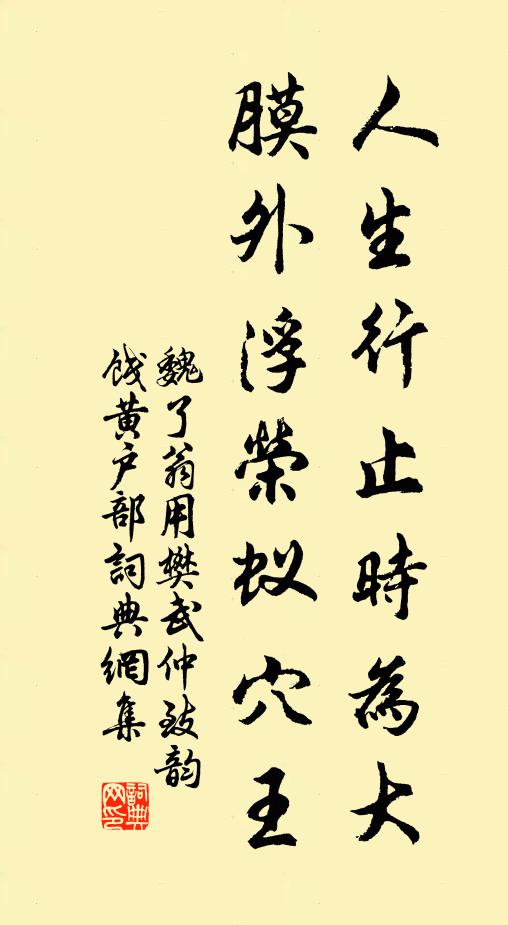 人生行止時為大
膜外浮榮蚁穴王
魏了翁用樊武仲致韵
餞黄户部詞典網集
詞典网印